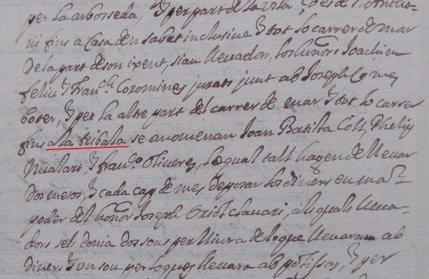 per la arboseda, y per part de la vila, y des de St Antoni
ni fins a Casa den sabat inclusive y tot lo carrer de mar
de la part de son ixent, sian llevador, los honors Joachim
Feliu y Franch Coromines jurats junt ab Joseph Gomes
boter, y per la altre part del carrer de mar y tot lo carrer
fins a la ribala se anomenan Joan Batista Coll, Phelip
Mualart y Franco Oliveres, lo qual tall hagen de llevar
dos neros, y cada cap de mes deposar los diners en
poder del honor Joseph Oriol clavari, als quals lleva-
dors sels donia dos sous per lliura de lo que llevaran ab
diners y un sou per lo que llevara ab , y per